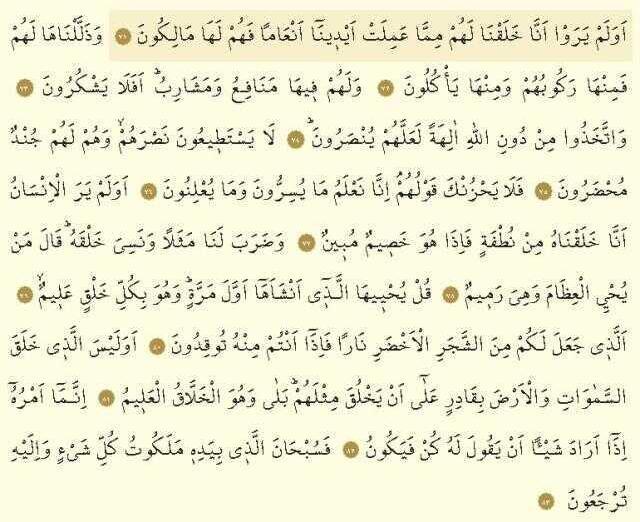 اَوَلَمْ يَرَوْا اَنَّا خَلَقْنَا لَهُمْ مِمَّا عَمِلَتْ اَيْد۪ينَٓا اَنْعَامًا فَهُمْ لَهَا مَالِكُونَ ﴿٧١﴾ وَذَلَّلْنَاهَا لَهُمْ
فَمِنْهَا رَكُوبُهُمْ وَمِنْهَا يَأْكُلُونَ ﴿٧٢﴾ وَلَهُمْ ف۪يهَا مَنَافِعُ وَمَشَارِبُۜ اَفَلَا يَشْكُرُونَ ﴿٧٣﴾
وَاتَّخَذُوا مِنْ دُونِ اللّٰهِ اٰلِهَةً لَعَلَّهُمْ يُنْصَرُونَۜ ﴿٧٤﴾ لَا يَسْتَط۪يعُونَ نَصْرَهُمْۙ وَهُمْ لَهُمْ جُنْدٌ
مُحْضَرُونَ ﴿٧٥﴾ فَلَا يَحْزُنْكَ قَوْلُهُمْۢ اِنَّا نَعْلَمُ مَا يُسِرُّونَ وَمَا يُعْلِنُونَ ﴿٧٦﴾ اَوَلَمْ يَرَ الْاِنْسَانُ
اَنَّا خَلَقْنَاهُ مِنْ نُطْفَةٍ فَاِذَا هُوَ خَص۪يمٌ مُب۪ينٌ ﴿٧٧﴾ وَضَرَبَ لَنَا مَثَلًا وَنَسِيَ خَلْقَهُۜ قَالَ مَنْ
يُحْيِ الْعِظَامَ وَهِيَ رَم۪يمٌ ﴿٧٨﴾ قُلْ يُحْي۪يهَا الَّذ۪ٓي اَنْشَاَهَٓا اَوَّلَ مَرَّةٍۜ وَهُوَ بِكُلِّ خَلْقٍ عَل۪يمٌۙ ﴿٧٩﴾
اَلَّذ۪ي جَعَلَ لَكُمْ مِنَ الشَّجَرِ الْاَخْضَرِ نَارًا فَاِذَٓا اَنْتُمْ مِنْهُ تُوقِدُونَ ﴿٨٠﴾ اَوَلَيْسَ الَّذ۪ي خَلَقَ
السَّمٰوَاتِ وَالْاَرْضَ بِقَادِرٍ عَلٰٓى اَنْ يَخْلُقَ مِثْلَهُمْۜ بَلٰى وَهُوَ الْخَلَّاقُ الْعَل۪يمُ ﴿٨١﴾ اِنَّمَٓا اَمْرُهُٓ
اِذَٓا اَرَادَ شَيْـًٔا اَنْ يَقُولَ لَهُ كُنْ فَيَكُونُ ﴿٨٢﴾ فَسُبْحَانَ الَّذ۪ي بِيَدِه۪ مَلَكُوتُ كُلِّ شَيْءٍ وَاِلَيْهِ
تُرْجَعُونَ ﴿٨٣﴾